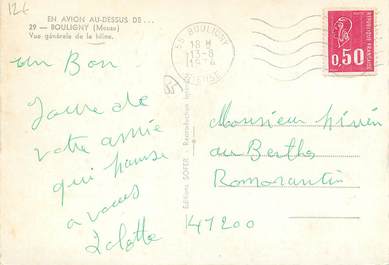 12€
EN AVION AU-DESSUS DE...
29 — BOULIGNY (Meuse)
Vue générale de la Mine.
55 BOULIGNY
18 H
13-8
1974
MEUSE
REPUBLIQUE FRANÇAISE
0,50
un Bon
Jour de
votre amie
qui pense
a vous
Lolotte
Editions SOFER - Reproduction
Monsieur
au Berthos
Romorantin
41200